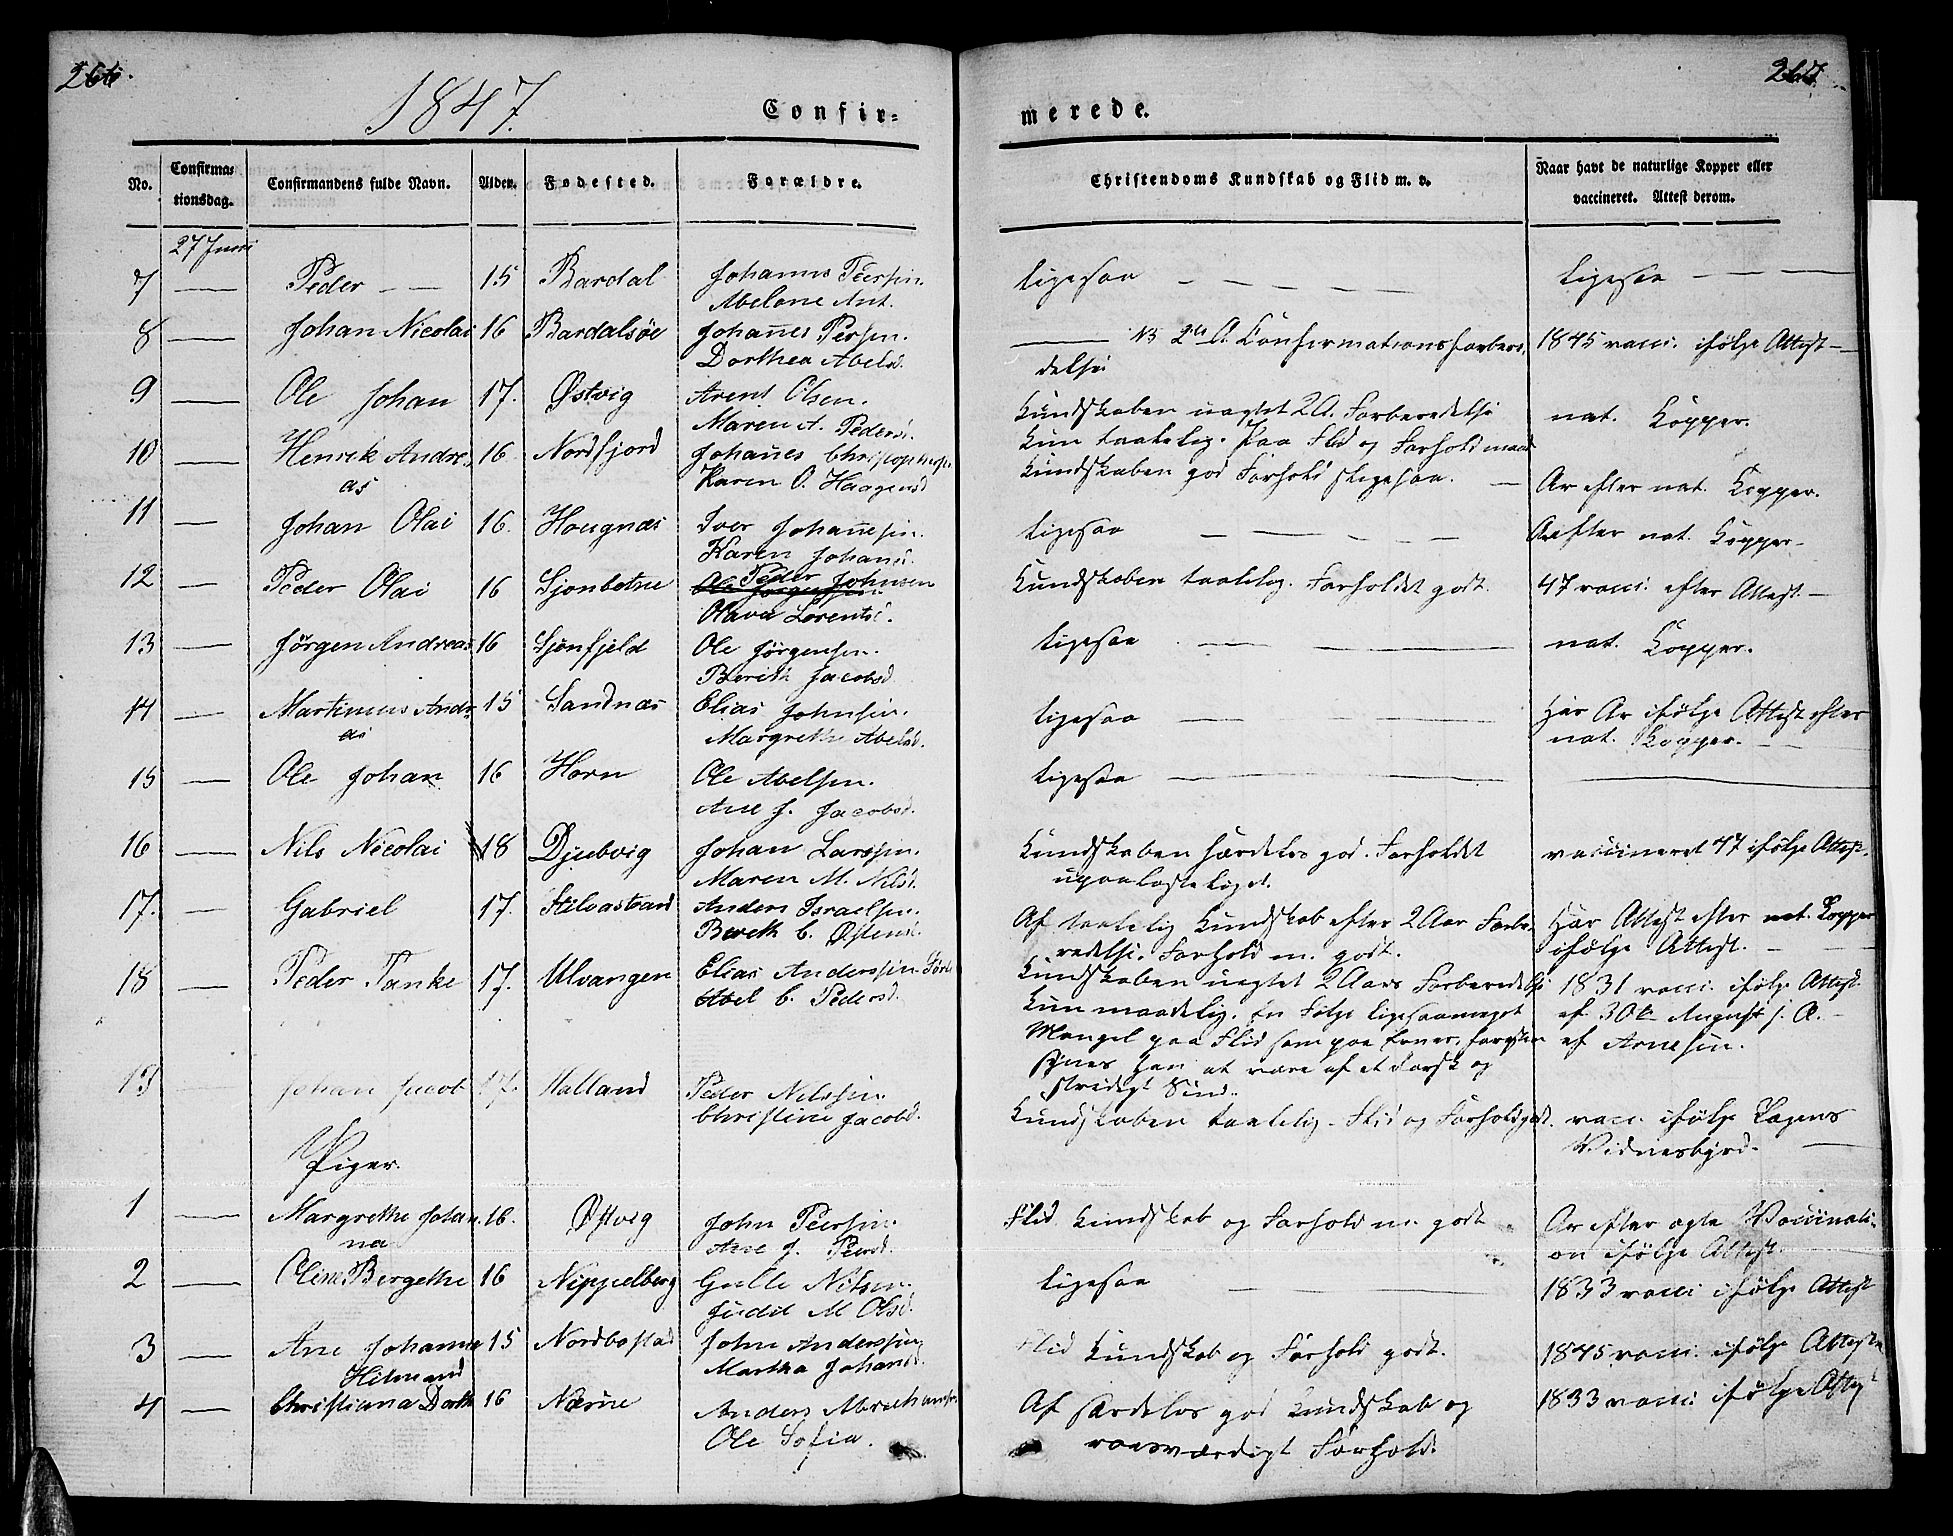 266.
267.
1847.
Confir=
merede.
No.
Confirma=
tionsdag.
Confirmandens fulde Navn.
Alder.
Fødested.
Forældre.
Christendoms Kundskab og Flid m. v.
Naar havt de naturlige Kopper eller
vaccineret. Attest derom.
27 Juni
7 — Peder — — 15 Bardal Johannes Peersen.
Abelone Ant.
ligesaa — — — — —
ligesaa — — —
8 — Johan Nicolai 16 Bardalsøe Johannes Persen.
Dorthea Abelsd.
— NB 2det A. Confirmationsforbere
delse
1845 vacci. ifølge Attest —
9 — Ole Johan 17. Østvig Arent Olsen.
Maren A. Pedersd.
Kundskaben uagtet 2 A. Forberedelse
kun taalelig. Paa Flid og Forhold maad
nat. Kopper.
10 — Henrik Andre
as
16 Nordfjord Johannes Christophersen
Karen O. Haagensd
Kundskaben god Forhold ligesaa. —
Ar efter nat. Kopper.
11 — Johan Olai 16. Hougnæs Iver Johannesen.
Karen Johansd.
ligesaa — — — — —
Ar efter nat. Kopper.
12 — Peder Olai 16 Sjonbotne Peder Johnsen
Olava Lorentsd.
Kundskaben taalelig. Forholdet godt.
47 vacci. efter Attest. —
13 — Jørgen Andreas 16 Sjonfjeld Ole Jørgensen.
Bereth Jacobsd.
ligesaa — — —
nat. Kopper.
14 — Martinus Andr
as
15 Sandnæs Elias Johnsen.
Margrethe Abelsd.
ligesaa — — —
Har Ar ifølge Attest efter
nat. Kopper. —
15 — Ole Johan 16 Horn Ole Abelsen.
Ane J. Jacobsd.
ligesaa — — —
16 — Nils Nicolai 18 Djubvig Johan Larssen.
Maren M. Nilsd.
Kundskaben særdeles god. Forholdet
upaaklageligt.
vaccineret 47 ifølge Attest.
17. — Gabriel 17. Stilvastrand Anders Israelsen.
Bereth C. Østensd.
Af taalelig Kundskab efter 2 Aar Forbe
redelse. Forhold m. godt.
Har Attest efter nat. Kopper
ifølge Attest. —
18 — Peder Tanke 17. Ulvangen Elias Anderssen
Abel C. Pedersd.
Kundskaben uagtet 2 Aars Forberedelse
kun maadelig. En Følge ligesaameget
Mangel paa Flid som paa
synes han at være af et dorsk og
stridigt Sind.
1831 vacci. ifølge Attest
af 30te August s. A. —
af Arnesen.
19 Johan Jacob 17. Halland Peder Nilssen.
Christine Jacobsd.
Kundskaben taalelig. Flid og Forhold godt.
vacc. ifølge Pagens
Vidnesbyrd. —
Piger.
1 — Margrethe Johan
na
16. Østvig John Peersen.
Ane J. Peersd.
Flid Kundskab og Forhold m. godt
Ar efter ægte Vaccinati
on ifølge Attest.
2 — Oline Bergethe 16 Nippelberg Gulle Nilsen.
Judit M Olsd.
ligesaa — — —
1833 vacci ifølge Attest
3 — Ane Johanna
15 Nordbostad John Anderssen
Martha Johansd.
Flid Kundskab og Forhold godt.
1845 vacci. ifølge Attest
4 — Christiana Dorth 16 Næsne Anders Abrahamsen
Ole Sofia.
Af særdeles god Kundskab og
roesværdigt Forhold.
1833 vacci ifølge Attest